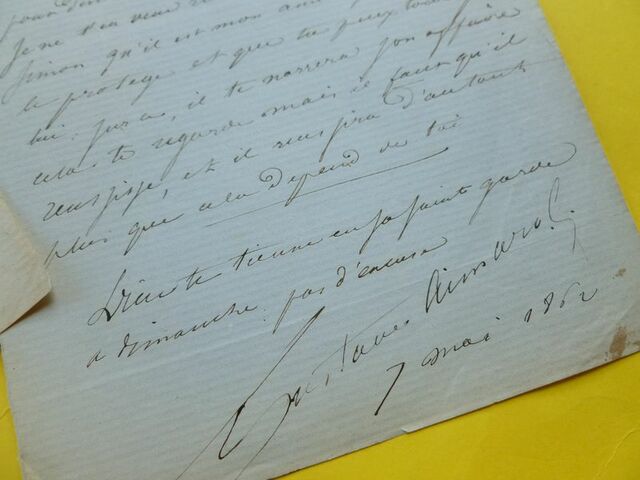 je ne t'en veux
sinon qu'il est mon ami
le protège et que tu peux tout
lui. pour ça, il te narrera son affaire
cela te regarde mais il faut qu'il
reussisse, et il reussira d'autant
plus que cela dépend de toi
Dieu te tienne en sa sainte garde
a dimanche. pas d'excuse
Gustave Aimard
7 mai 1862